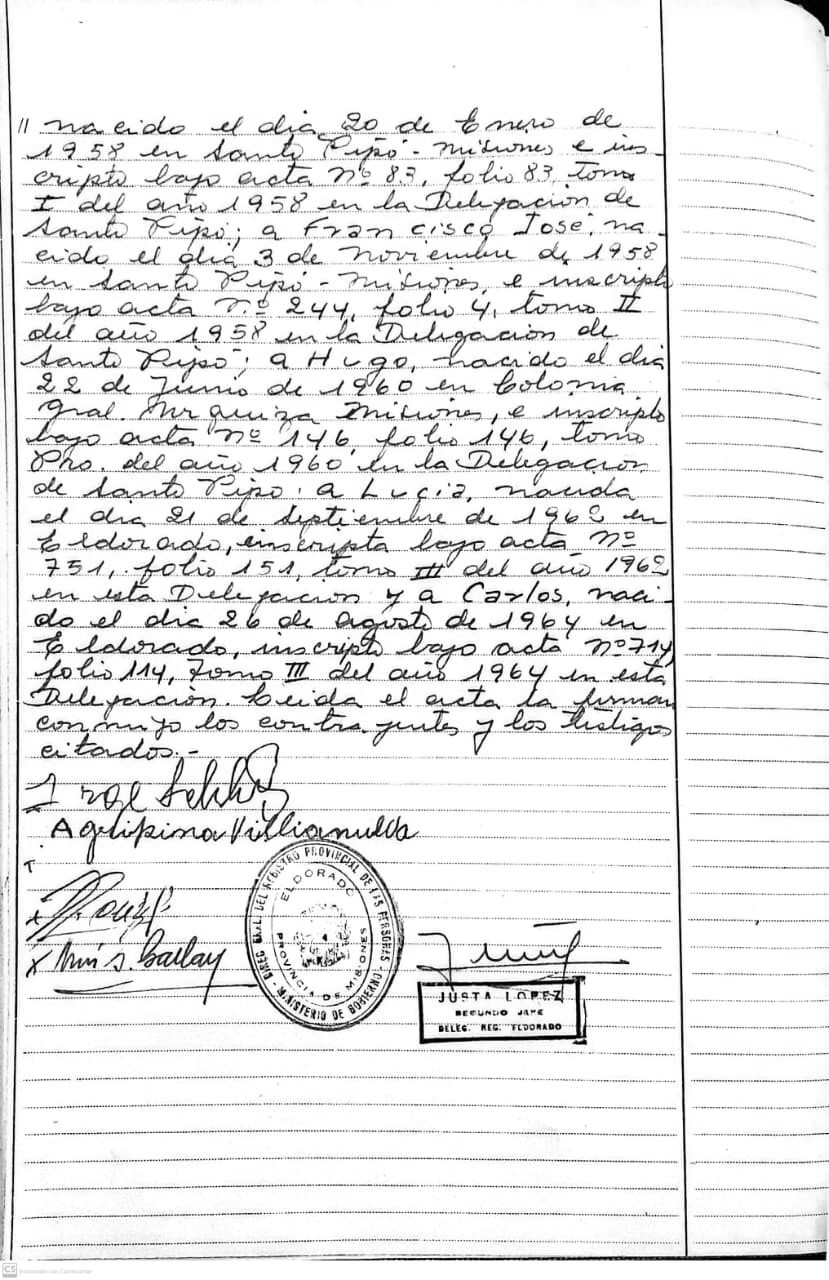 // nacido el dia 20 de Enero de
1958 en Santo Pipó - Misiones e ins-
cripto bajo acta Nº 83, folio 83, tomo
I del año 1958 en la Delegación de
Santo Pipó; a Francisco José, na-
cido el dia 3 de Noviembre de 1958
en Santo Pipó - Misiones, e inscripto
bajo acta Nº 244, folio 4, tomo II
del año 1958 en la Delegación de
Santo Pipó; a Hugo, nacido el dia
22 de Junio de 1960 en Colonia
Gral. Urquiza Misiones, e inscripto
bajo acta Nº 146, folio 146, tomo
Pro. del año 1960 en la Delegación
de Santo Pipó; a Lucia, nacida
el dia 21 de Septiembre de 1962 en
Eldorado, inscripta bajo acta Nº
751, folio 151, tomo III del año 1962
en esta Delegación y a Carlos, naci-
do el dia 26 de Agosto de 1964 en
Eldorado, inscripto bajo acta Nº 714,
folio 114, Tomo III del año 1964 en esta
Delegación. Leida el acta la firman
conmigo los contrayentes y los testigos
citados.-
Agripina Villanueva
T
x
x
DIREC. GRAL. DEL REGISTRO PROVINCIAL DE LAS PERSONAS
- MINISTERIO DE GOBIERNO -
ELDORADO
PROVINCIA DE MISIONES
JUSTA LOPEZ
SEGUNDO JEFE
DELEG. REG. ELDORADO
CS